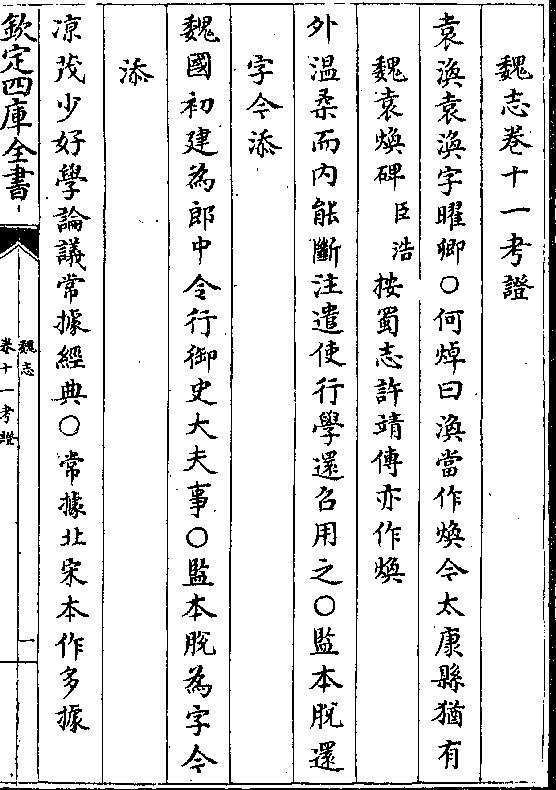 魏志卷十一考證
袁渙袁渙字曜卿○何焯曰渙當作煥今太康縣猶有
魏袁煥碑臣浩按蜀志許靖傳亦作煥
外温柔而内能斷注遣使行學還召用之○監本脫還
字今添
魏國初建為郎中令行御史大夫事○監本脫為字今
添
凉茂少好學論議常據經典○常據北宋本作多據
欽定四庫全書
魏志
卷十一考證
一